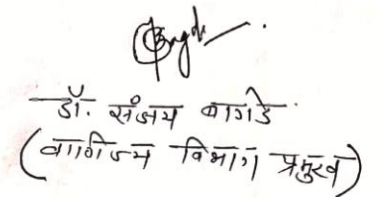 डॉ. संजय बागडे
(वाणिज्य विभाग प्रमुख)